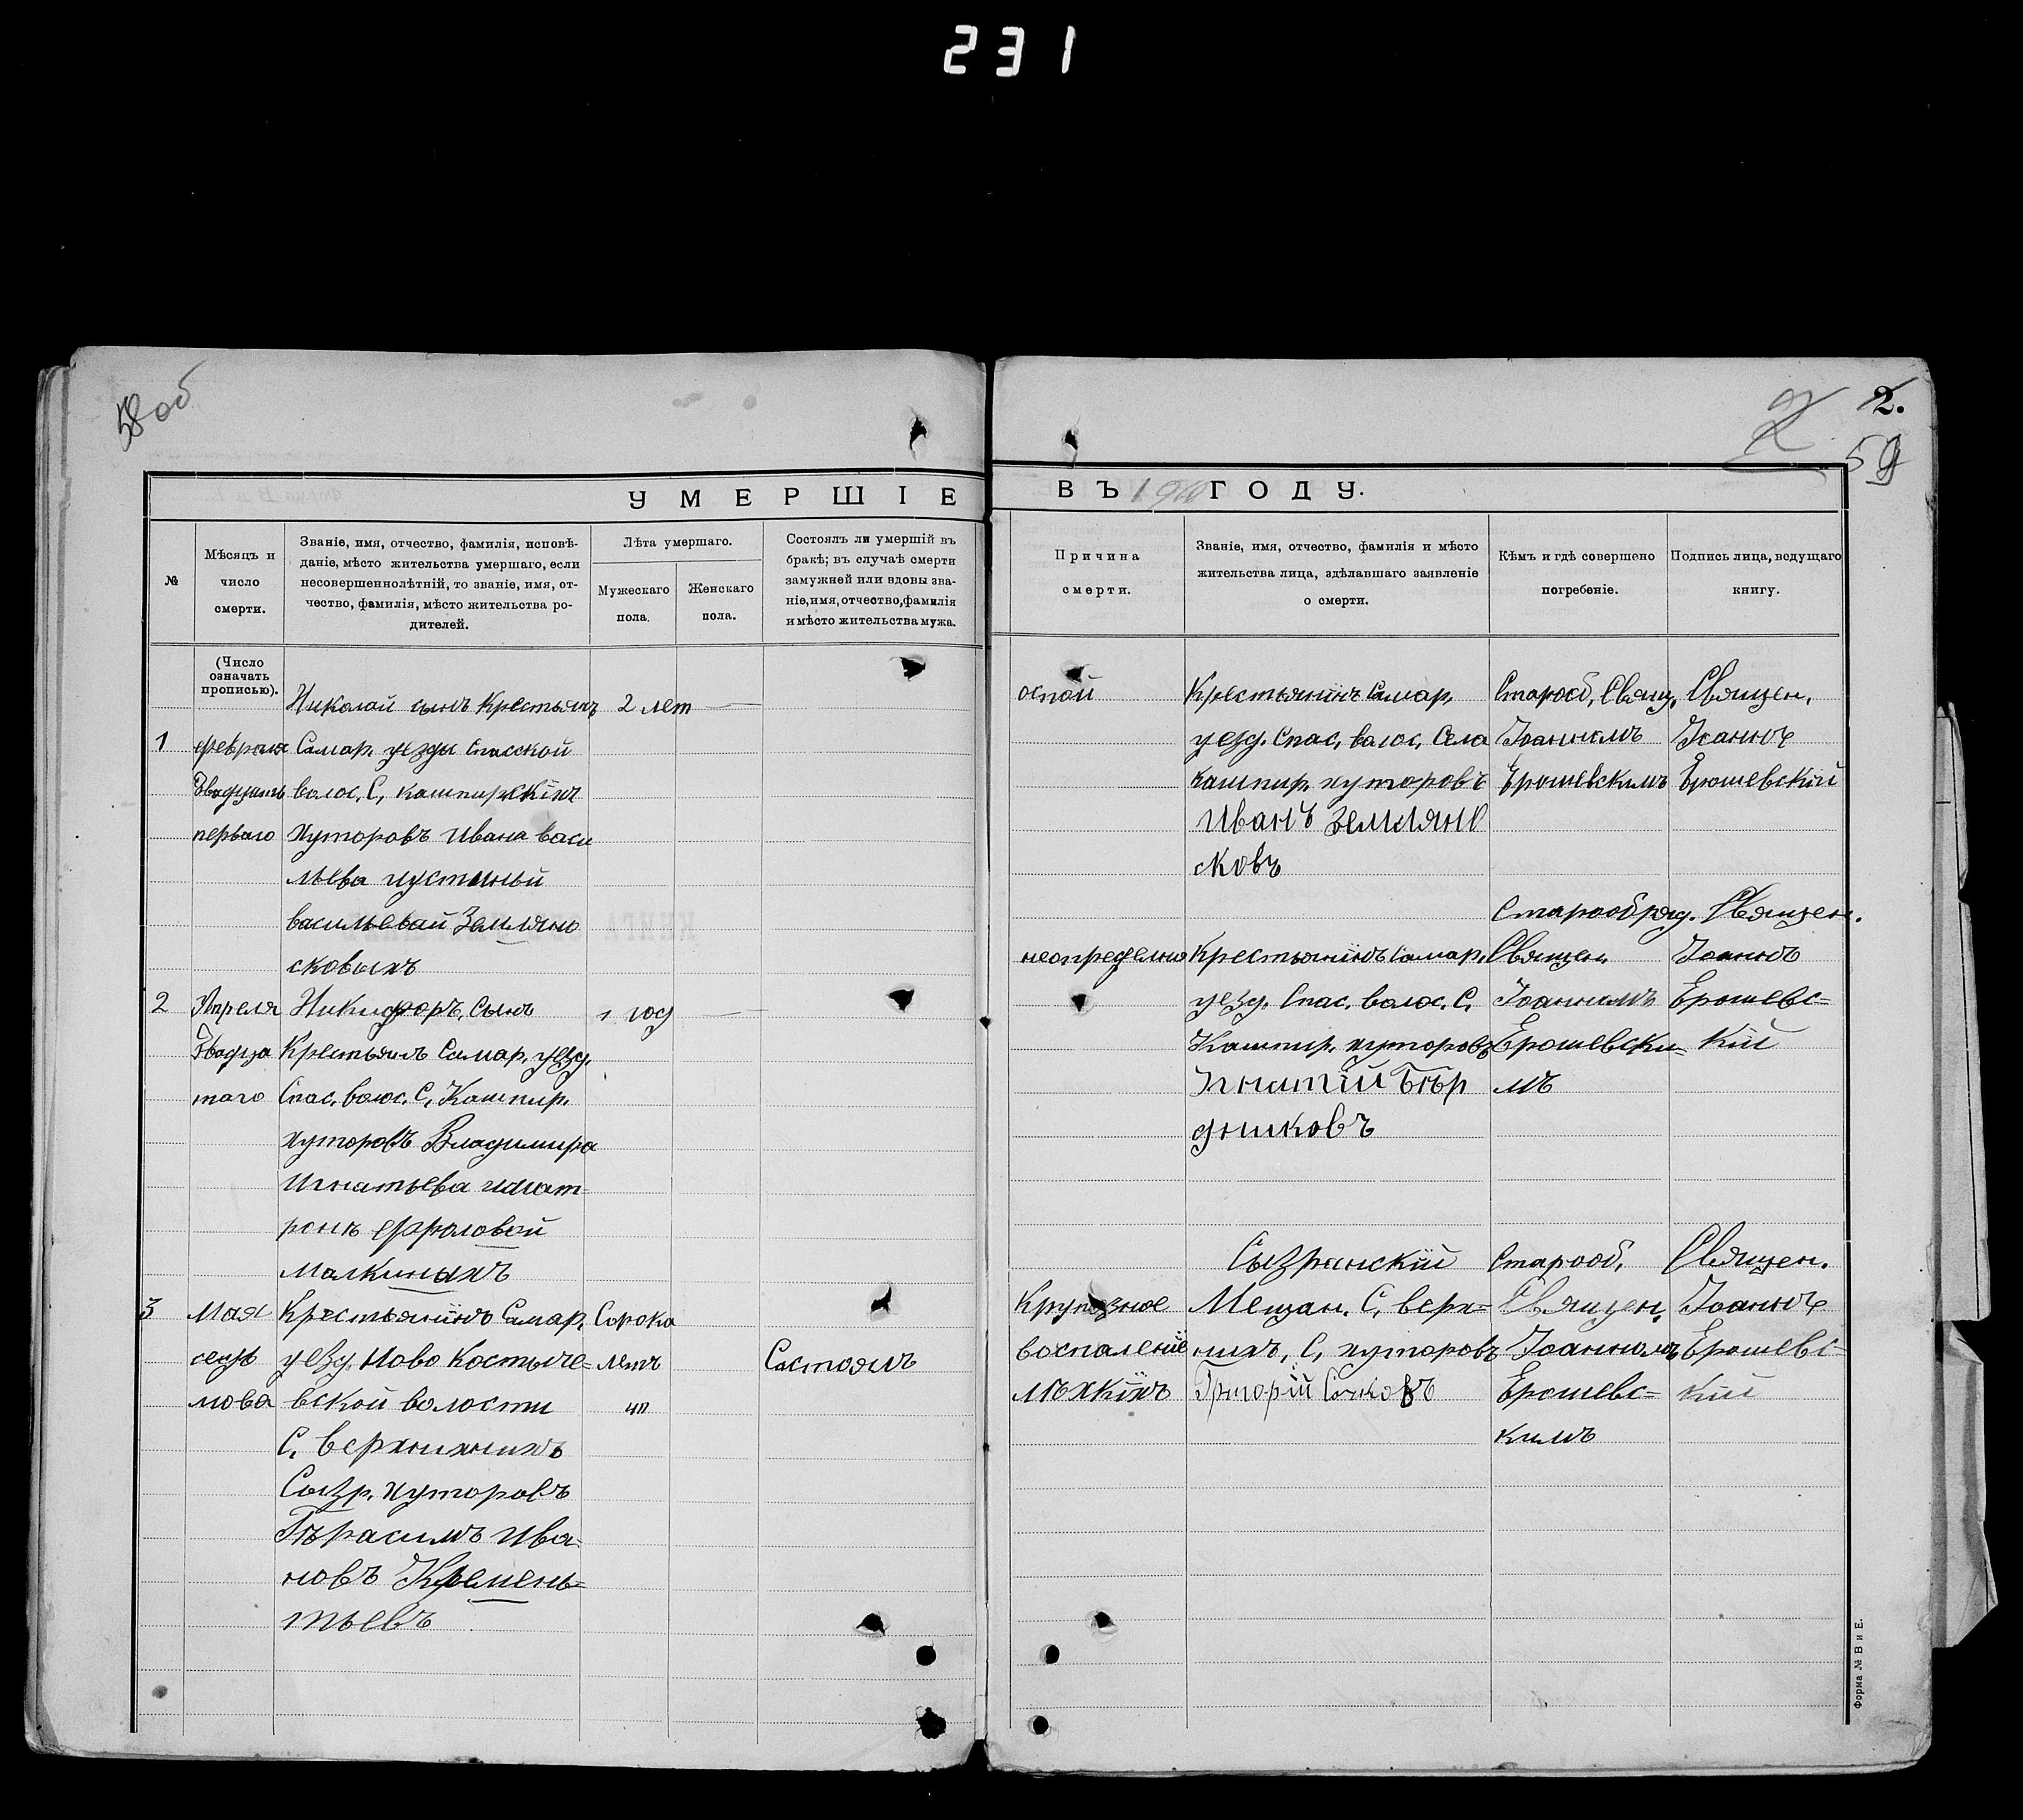 231
58 об
2.
2
59
УМЕРШІЕ
ВЪ 19 ГОДУ.
№
Мѣсяцъ и
число
смерти.
Званіе, имя, отчество, фамилія, исповѣ-
даніе, мѣсто жительства умершаго, если
несовершеннолѣтній, то званіе, имя, от-
чество, фамилія, мѣсто жительства ро-
дителей.
Лѣта умершаго.
Мужескаго
пола.
Женскаго
пола.
Состоялъ ли умершій въ
бракѣ; въ случаѣ смерти
замужней или вдовы зва-
ніе, имя, отчество, фамилія
и мѣсто жительства мужа.
Причина
смерти.
Званіе, имя, отчество, фамилія и мѣсто
жительства лица, здѣлавшаго заявленіе
о смерти.
Кѣмъ и гдѣ совершено
погребеніе.
Подпись лица, ведущаго
книгу.
(Число
означать
прописью).
1
февраля
двадцать
перваго
Николай сынъ Крестьянъ
Самар. уезды Спасской
волос. С, кашпирскіхъ
хуторовъ Ивана васи
льева иустиньи
васильевай Земляно
сковыхъ
2 лет
оспой
Крестьянинъ Самар,
уезд. Спас, валос, Села
кашпир. хуторовъ
Иванъ Земляно
сковъ
Старооб, Свящ,
Іоанномъ
Ерошевскимъ
Священ,
Іоаннъ
Ерошевскій
2
Апреля
двадца
таго
Никифоръ, сынъ
Крестьянъ Самар, уезд.
Спас, волос. С, Кашпир.
хуторовъ Владимира
Игнатьева имат-
роны ефроловай
Малкиныхъ
1 год
неопределно
Крестьянинъ Самар,
уезд. Спас. волос. С,
Кашпир. хуторовъ
Игнатій Бър
дниковъ
Старообряд.
Священ,
Іоанномъ
Ерошевски-
мъ
Священ.
Іоаннъ
Ерошевс=
кій
3
Мая
седь
мова
Крестьянинъ Самар,
уезд, Ново Костыче-
вской волости
С, верхнихнихъ
Сызр, хуторовъ
Гърасимъ Ива-
новъ Кремень-
тьевъ
Сорока
летъ
40
Састоялъ
Крупозное
воспаленіе
лѣхкіхъ
Сызранскій
Мещан. С, верх=
нихъ, С, хуторовъ
Григорій Сачковъ
Старооб,
Священ,
Іоанномъ
Ерошевс=
кимъ
Священ.
Іоаннъ
Ерошевс-
кій
Форма № В и Е.